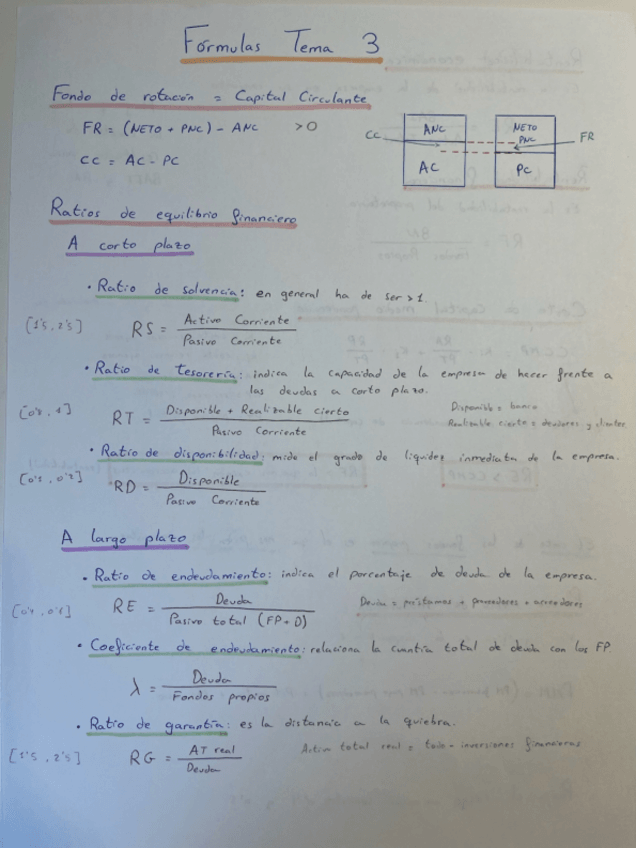 Fórmulas Tema 3
Fondo de rotación = Capital Circulante
FR = (NETO + PNC) - ANC >0
CC = AC - PC
CC
ANC
AC
NETO
PNC
PC
FR
Ratios de equilibrio financiero
A corto plazo
• Ratio de solvencia: en general ha de ser > 1.
[1'5, 2'5]
RS = Activo Corriente / Pasivo Corriente
• Ratio de tesorería: indica la capacidad de la empresa de hacer frente a
las deudas a corto plazo.
RT = Disponible + Realizable cierto / Pasivo Corriente
Disponible = banco
Realizable cierto = deudores y clientes
• Ratio de disponibilidad: mide el grado de liquidez inmediata de la empresa.
RD = Disponible / Pasivo Corriente
A largo plazo
• Ratio de endeudamiento: indica el porcentaje de deuda de la empresa.
RE = Deuda / Pasivo total (FP + D)
Deuda = préstamos + proveedores + acreedores
• Coeficiente de endeudamiento: relaciona la cuantía total de deuda con los FP.
λ = Deuda / Fondos propios
• Ratio de garantía: es la distancia a la quiebra.
[1'5, 2'5]
RG = AT real / Deuda
Activo total real = todo - inversiones financieras